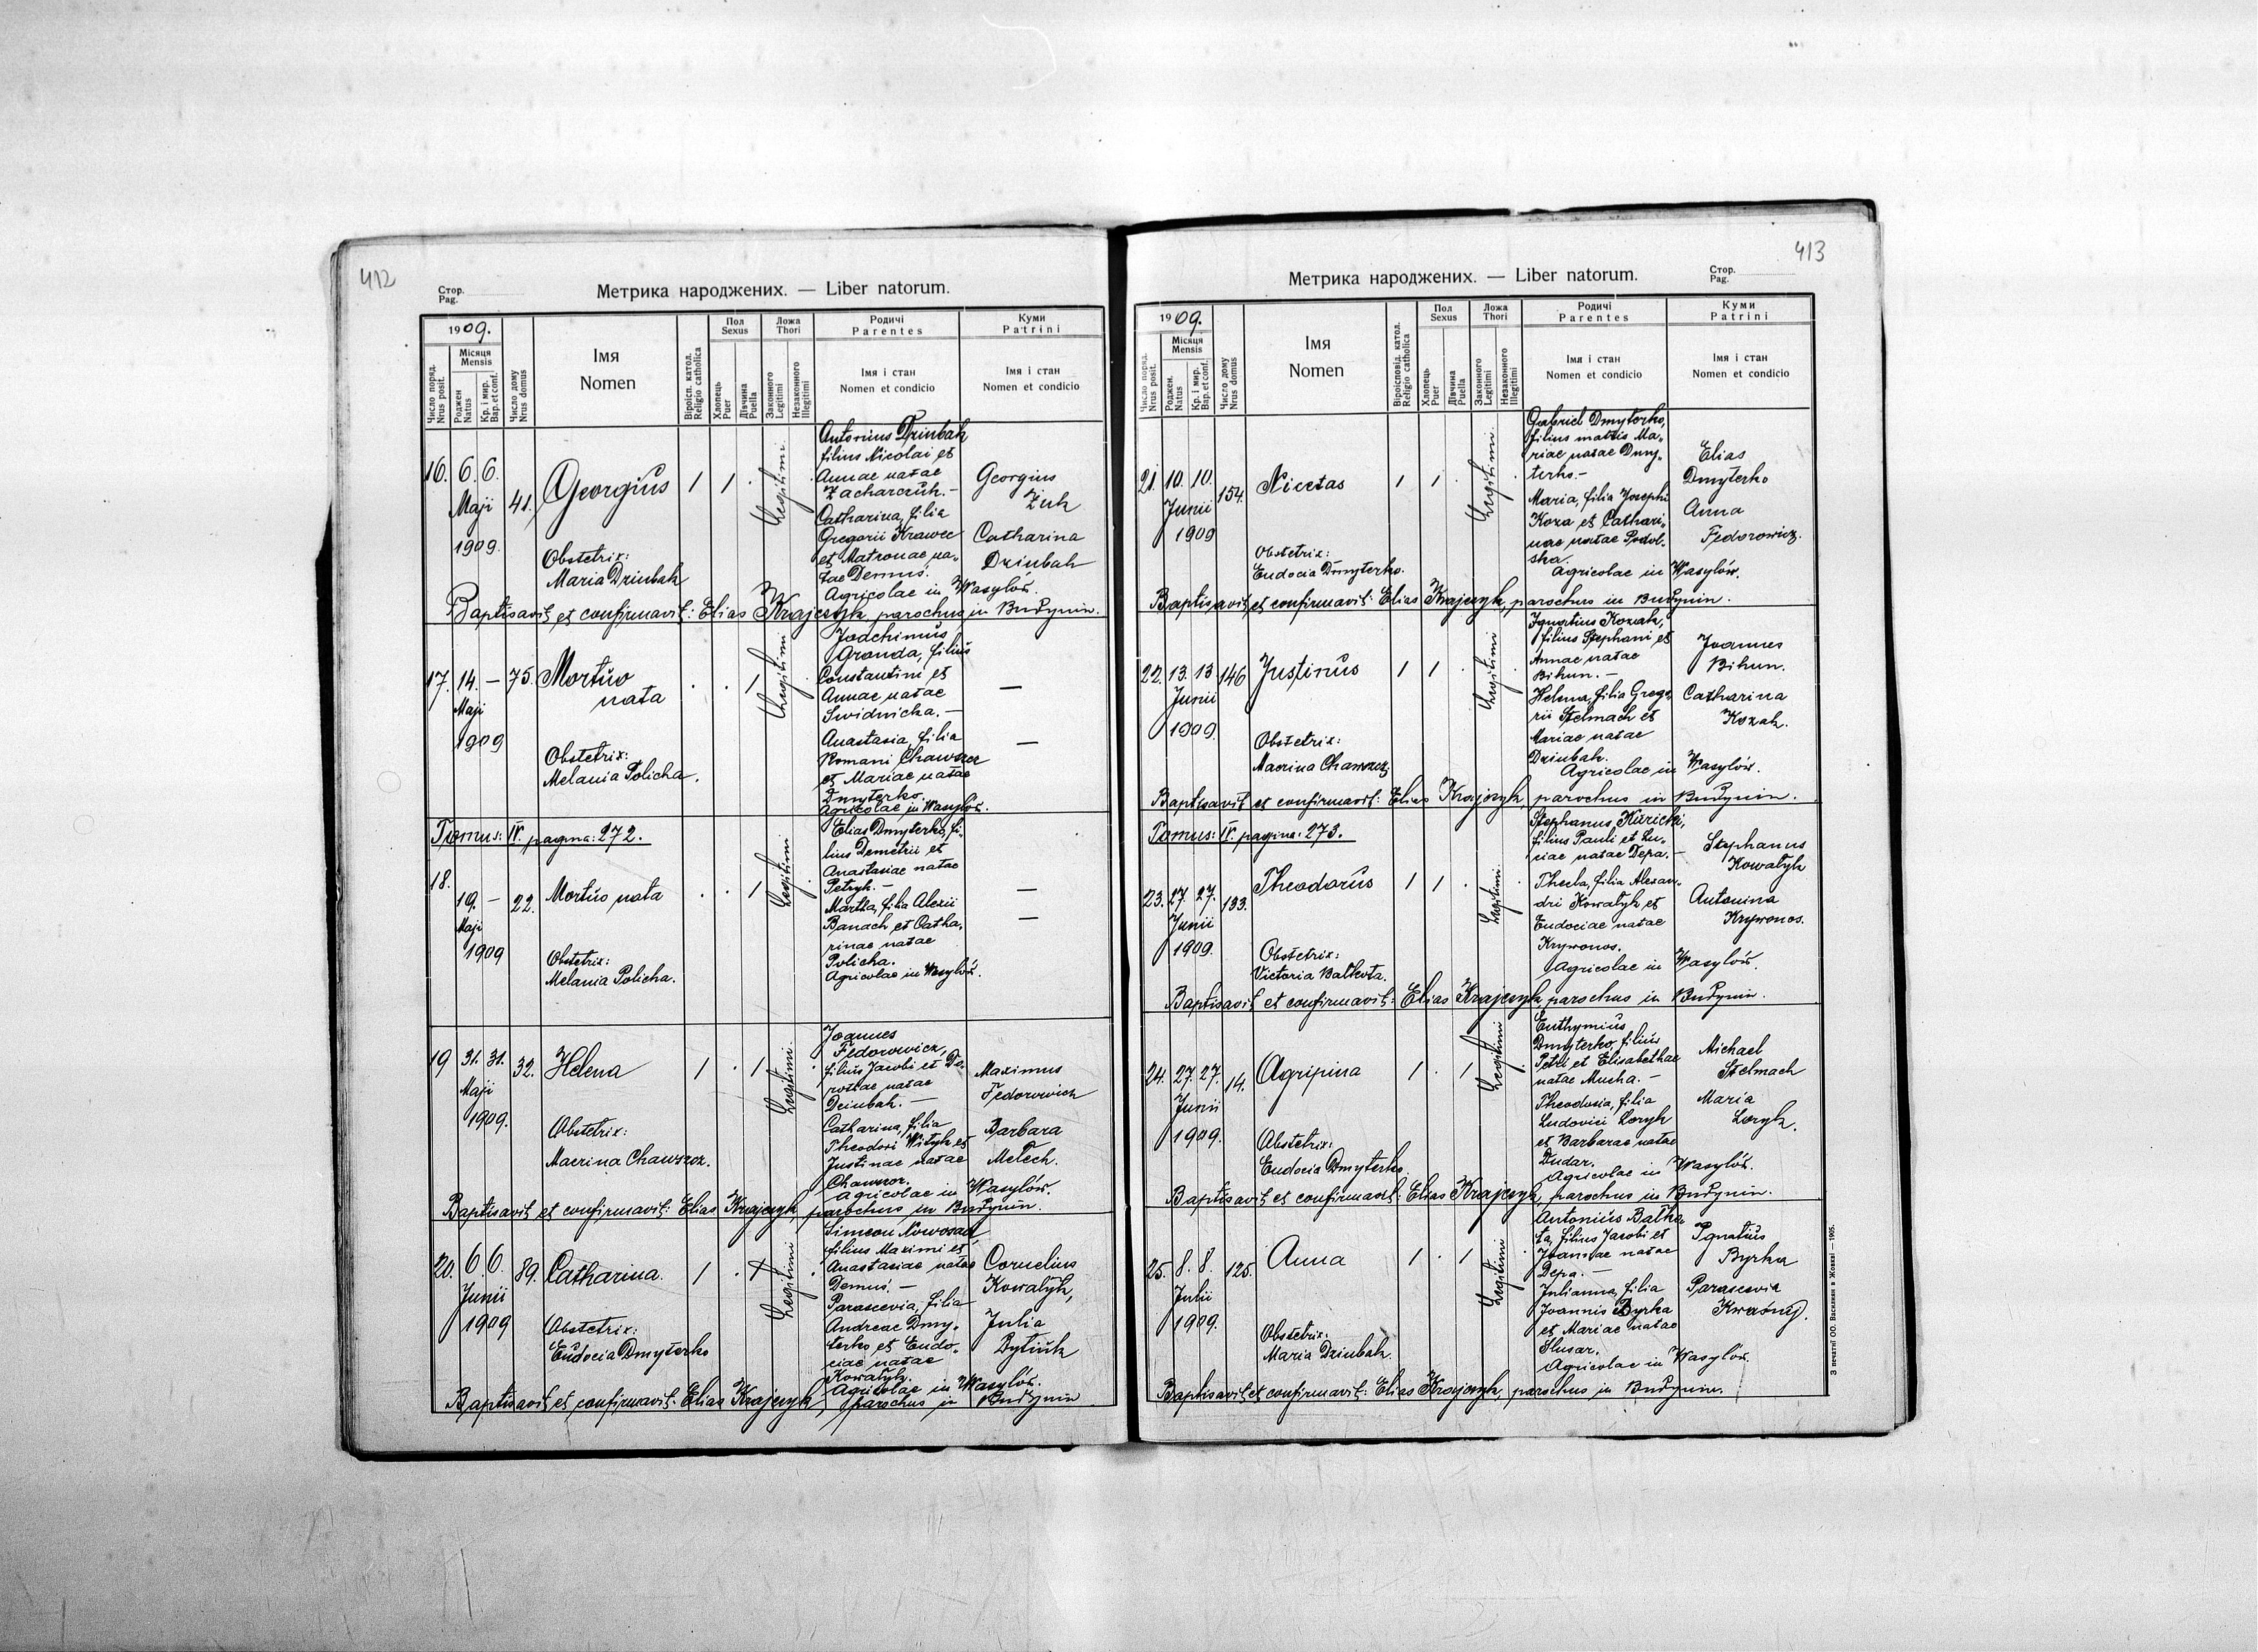 412
Стор.
Pag.
Метрика народжених. — Liber natorum.
1909.
Місяця
Mensis
Число поряд.
Nrus posit.
Роджен
Natus
Кр. і мир.
Bap. et conf.
Число дому
Nrus domus
Імя
Nomen
Віроісп. катол.
Religio catholica
Пол
Sexus
Хлопець
Puer
Дівчина
Puella
Ложа
Thori
Законного
Legitimi
Незаконного
Illegitimi
Родичі
Parentes
Імя і стан
Nomen et condicio
Куми
Patrini
Імя і стан
Nomen et condicio
16. 6. 6.
Maji 41.
1909.
Georgius
1 1 .
Legitimi.
Obstetrix:
Maria Dziubak
Antonius Dziubak
filius Nicolai et
Annae natae
Zacharczuk. —
Catharina, filia
Gregorii Krawec
et Matronae, na„
tae Demuś.
Agricolae in Wasylów.
Georgius
Żuk
Catharina
Dziubak
Baptisavit et confirmavit: Elias Krajczyk, parochus in Budynin.
17. 14. — 75.
Maji
1909
Mortuo
nata
. . 1
Legitimi
Obstetrix:
Melania Policha.
Joachimus
Gronda, filius
Constantini et
Annae natae
Swidnicka. —
Anastasia, filia
Romani Chawszcz
et Mariae natae
Dmyterko.
Agricolae in Wasylów.
—
—
Tomus: IV. pagina: 272.
18.
19. — 22.
Maji
1909
Mortuo nata
. . 1
Legitimi
Obstetrix:
Melania Policha.
Elias Dmyterko, fi„
lius Demetrii et
Anastasiae natae
Petryk. —
Martha, filia Alexii
Banach et Catha„
rinae natae
Policha.
Agricolae in Wasylów.
—
—
19 31. 31. 32.
Maji
1909.
Helena
1 . 1
Legitimi.
Obstetrix:
Macrina Chawszcz.
Joannes
Fedorowicz,
filius Jacobi et Do„
rotae natae
Dziubak. —
Catharina, filia
Theodori Wityk et
Justinae natae
Chawszcz.
Agricolae in Wasylów.
Maximus
Fedorowicz
Barbara
Melech.
Baptisavit et confirmavit: Elias Krajczyk, parochus in Budynin.
20. 6. 6. 89.
Junii
1909
Catharina.
1 . 1
Legitimi
Obstetrix:
Eudocia Dmyterko
Simeon Nowosad
filius Maximi et
Anastasiae natae
Demuś. —
Parascevia, filia
Andreae Dmy„
terko et Eudo„
ciae natae
Kowalyk.
Agricolae in Wasylów.
Cornelius
Kowalyk,
Julia
Dytiuk
Baptisavit et confirmavit: Elias Krajczyk, parochus in Budynin
413
Стор.
Pag.
Метрика народжених. — Liber natorum.
1909.
Місяця
Mensis
Число поряд.
Nrus posit.
Роджен.
Natus
Кр. і мир.
Bap. et conf.
Число дому
Nrus domus
Імя
Nomen
Віроісповід. катол.
Religio catholica
Пол
Sexus
Хлопець
Puer
Дівчина
Puella
Ложа
Thori
Законного
Legitimi
Незаконного
Illegitimi
Родичі
Parentes
Імя і стан
Nomen et condicio
Куми
Patrini
Імя і стан
Nomen et condicio
21. 10. 10. 154.
Junii
1909
Nicetas
1 1 .
Legitimi.
Obstetrix:
Eudocia Dmyterko.
Gabriel Dmyterko,
filius matris Ma„
riae natae Dmy„
terko —
Maria, filia Josephi
Koza et Cathari„
nae natae Podol„
ska.
Agricolae in Wasylów.
Elias
Dmyterko
Anna
Fedorowicz.
Baptisavit et confirmavit: Elias Krajczyk, parochus in Budynin.
22. 13. 13 146
Junii
1909.
Justinus
1 1 .
Legitimi
Obstetrix:
Macrina Chawszcz.
Ignatius Kozak,
filius Stephani et
Annae natae
Bihun. —
Helena, filia Grego„
rii Stelmach et
Mariae natae
Dziubak.
Agricolae in Wasylów.
Joannes
Bihun.
Catharina
Kozak.
Baptisavit et confirmavit: Elias Krajczyk, parochus in Budynin.
Tomus: IV. pagina: 273.
23. 27. 27. 133.
Junii
1909.
Theodorus
1 1 .
Legitimi.
Obstetrix:
Victoria Balkota.
Stephanus Kuricki,
filius Pauli et Lu„
ciae natae Depa. —
Thecla, filia Alexan„
dri Kowalyk et
Eudociae natae
Krywonos.
Agricolae in Wasylów.
Stephanus
Kowalyk
Antonina
Krywonos.
Baptisavit et confirmavit: Elias Krajczyk, parochus in Budynin.
24. 27. 27. 14.
Junii
1909.
Agripina
1 . 1
Legitimi
Obstetrix:
Eudocia Dmyterko.
Euthymius
Dmyterko, filius
Petri et Elisabethae
natae Mucha. —
Theodosia, filia
Ludovici Loryk
et Barbarae natae
Dudar.
Agricolae in Wasylów.
Michael
Stelmach
Maria
Loryk.
Baptisavit et confirmavit: Elias Krajczyk, parochus in Budynin.
25. 8. 8. 125.
Julii
1909.
Anna
1 . 1
Legitimi
Obstetrix:
Maria Dziubak.
Antonius Balko
ta, filius Jacobi et
Joannae natae
Depa. —
Julianna, filia
Joannis Byrka
et Mariae natae
Slusar.
Agricolae in Wasylów.
Ignatius
Byrka
Parascevia
Kwaśnij.
Baptisavit et confirmavit: Elias Krajczyk, parochus in Budynin.
З печатні ОО. Василиян в Жовкві — 1905.